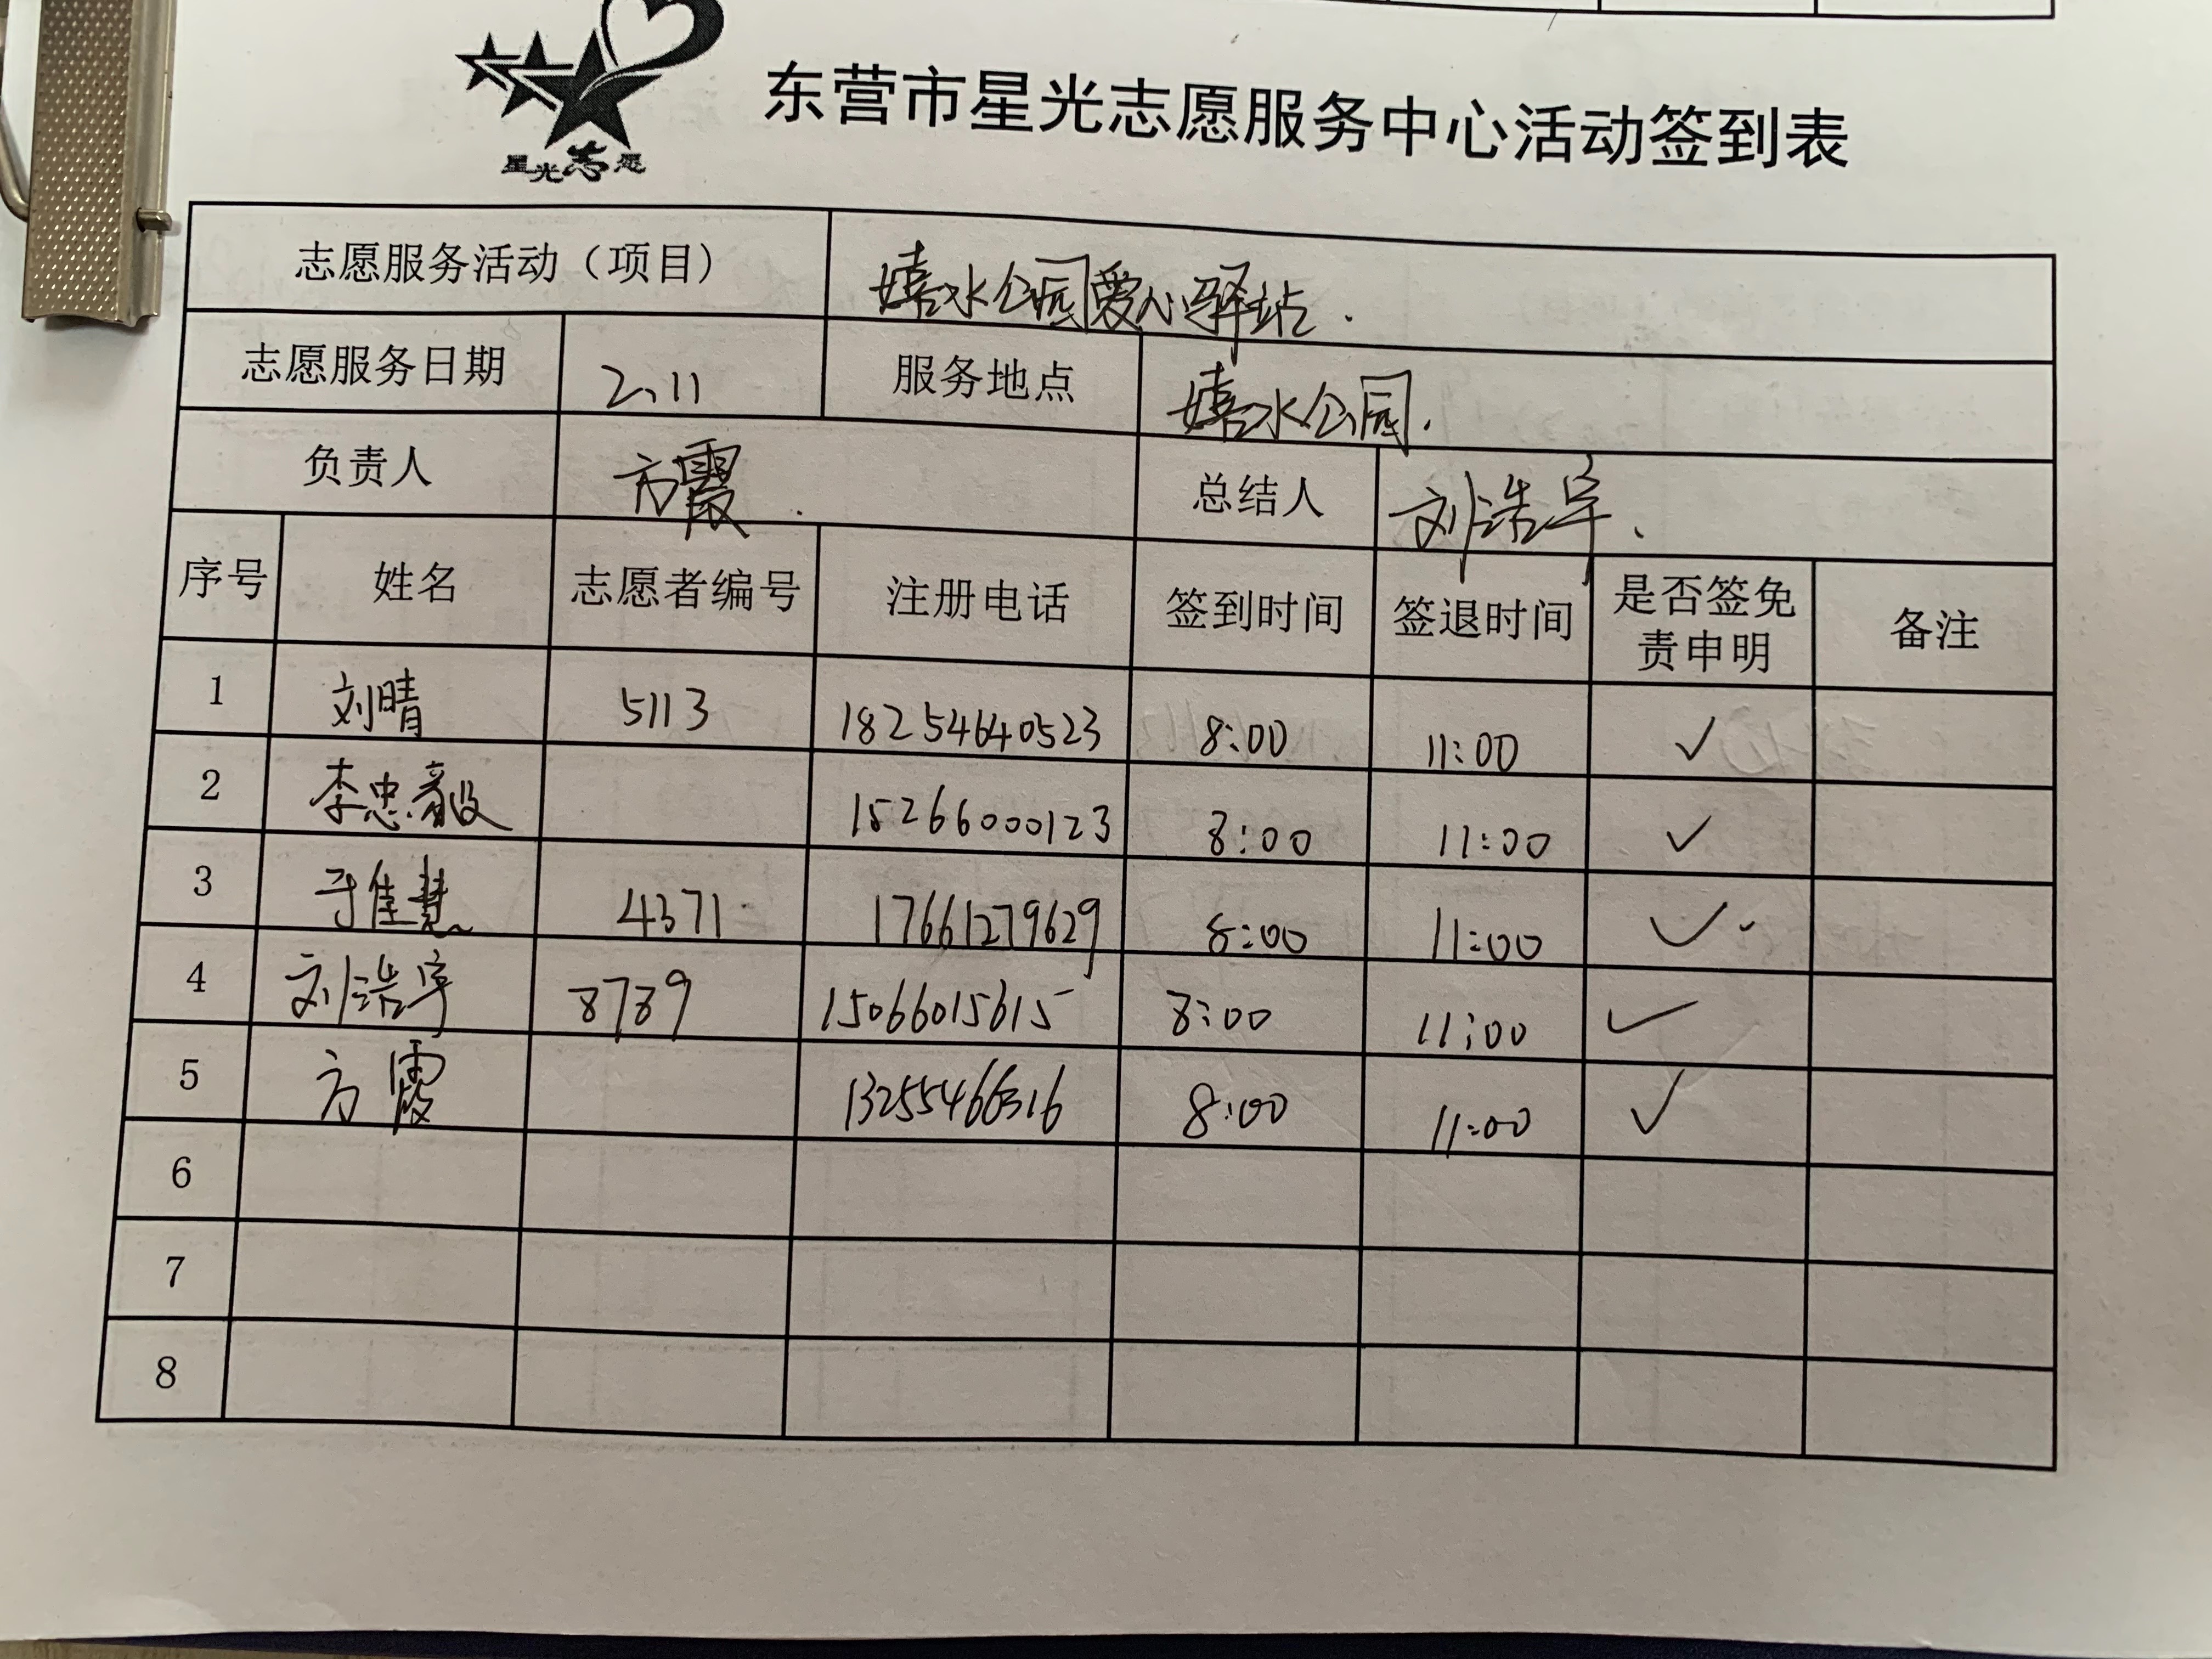 星光志愿
东营市星光志愿服务中心活动签到表
志愿服务活动（项目） 嬉水公园爱心驿站.
志愿服务日期 2.11 服务地点 嬉水公园.
负责人 方霞. 总结人 刘浩宇.
序号 姓名 志愿者编号 注册电话 签到时间 签退时间 是否签免责申明 备注
1 刘晴 5113 18254640523 8:00 11:00 ✓
2 李忠毅 15266000123 8:00 11:00 ✓
3 于佳慧 4371 17661279629 8:00 11:00 ✓
4 刘浩宇 8789 15066015615 8:00 11:00 ✓
5 方霞 13255466316 8:00 11:00 ✓
6
7
8